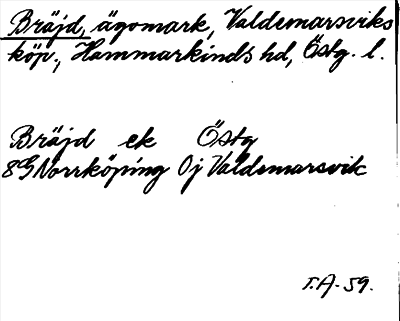 Bräjd, ägomark, Valdemarsviks
köp., Hammarkinds hd, Östg. l.
Bräjd ek Östg
8G Norrköping 0j Valdemarsvik
T.A. 59.